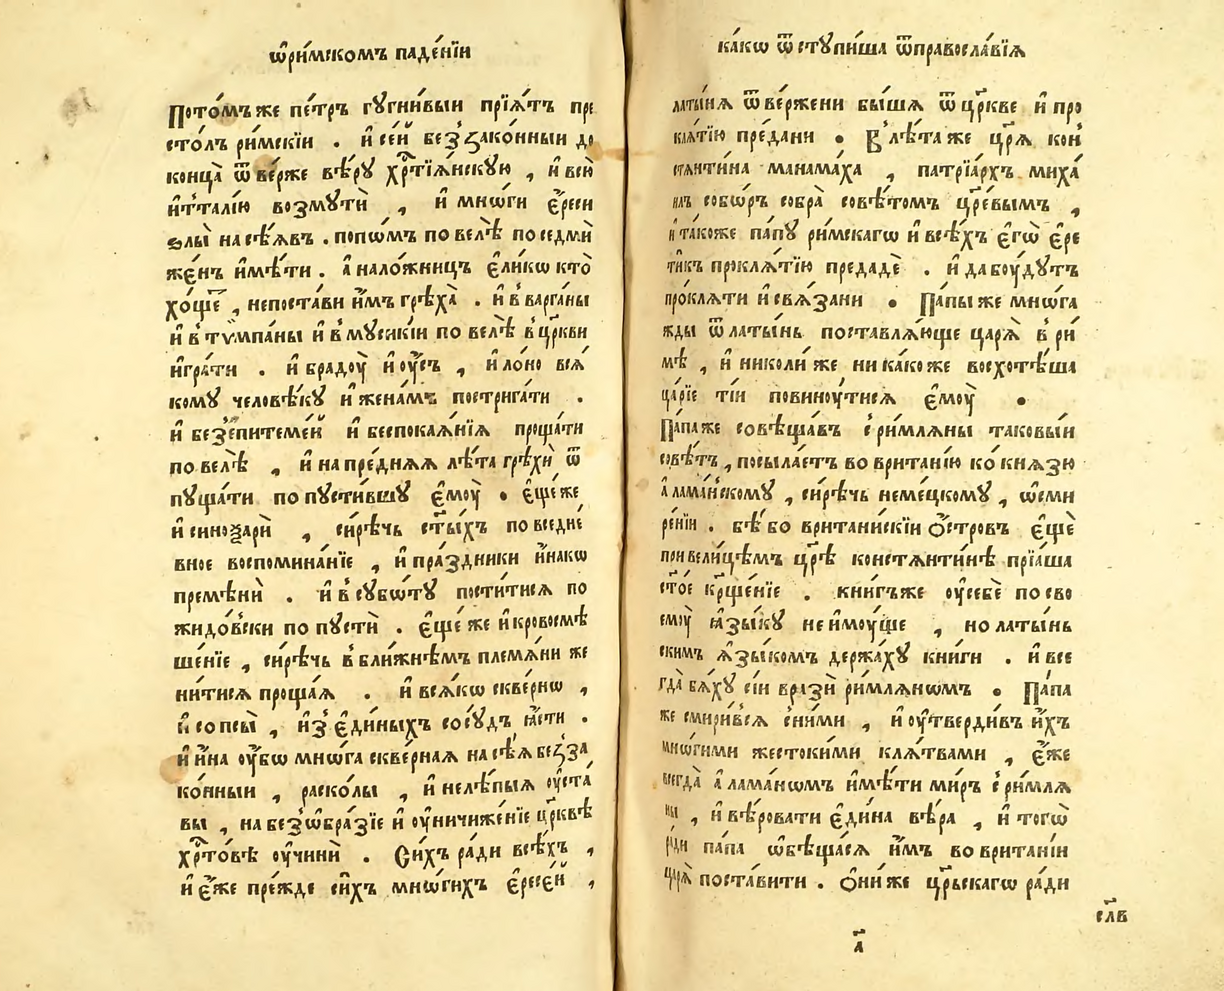 ѡ҆ри́мскомъ паде́нїи
Пото́мъже пе́тръ гꙋгни́выи прїѧ́тъ пре
сто́лъ ри́мскїи . и҆ се́й беꙁзако́нныи до
конца̀ ѿве́рже вѣ́рꙋ хрⷭ҇тїѧ́нскꙋю , и҆ всю
и҆тталі́ю возмꙋтѝ , и҆ мнѡ́ги є҆́реси
ѕлы̀ насѣ́ѧвъ . попѡ́мъ повелѣ̀ поседмѝ
же́нъ и҆мѣ́ти . а҆ нало́жницъ є҆ли́кѡ кто̀
хо́щеⷮ , непоста́ви и҆̀мъ грѣха̀ . и҆ в варга́ны
и҆ в тѵмпа́ны и҆ в мꙋсикі́и повелѣ̀ в цр҃кви
и҆гра́ти . и҆ брадоу̀ и҆ оу҆́съ , и҆ ло́но всѧ́
комꙋ человѣ́кꙋ и҆ жена́мъ пострига́ти .
и҆ без̾епитеме́й и҆ беспокаѧ́нїѧ проща́ти
повелѣ̀ , и҆ напре́днѧѧ лѣ́та грѣхѝ ѿ
пꙋща́ти попꙋсти́вшꙋ є҆моу̀ . є҆ще́же
и҆ синоѯарѝ , си́рѣчь ст҃ы́хъ повседне́
вное воспомина́нїе , и҆ пра́здники и҆́накѡ
премѣнѝ . и҆ в сꙋбѡ́тꙋ пости́тисѧ по
жидо́вски попꙋстѝ . є҆ще́же и҆ кровосмѣ
ше́нїе , си́рѣчь в бли́жнѣмъ пле́мѧни же
ни́тисѧ проща́ѧ . и҆ всѧ́кѡ скве́рнѡ ,
и҆ сопсы̀ , и҆з̾еди́ныхъ сосꙋ́дъ ꙗ҆́сти .
и҆ и҆́на оу҆́бѡ мнѡ́га скве́рнаѧ насѣ́ѧ беꙁза
ко́нныи , раско́лы , и҆ нелѣ́пыѧ оу҆ста́
вы , набез̾ѡбра́зїе и҆ оу҆ничиже́нїе цр҃квѣ
хрⷭ҇то́вѣ оу҆чинѝ . Си́хъ ра́ди всѣ́хъ ,
и҆ є҆́же пре́жде си́хъ мнѡ́гихъ є҆ресе́й ,
ка́кѡ ѿстꙋпи́ша ѿправосла́вїѧ
латы́нѧ ѿве́ржени бы́шѧ ѿ цр҃кве и҆ про
клѧ́тїю пре́дани . В лѣ́та же цр҃ѧ кон
стѧнти́на манама́ха , патрїа́рхъ миха́
илъ собѡ́ръ собра̀ совѣ́томъ цр҃е́вымъ ,
и҆ та́коже па́пꙋ ри́мскагѡ и҆ всѣ́хъ є҆гѡ̀ є҆ре
ти́къ проклѧ́тїю предадѐ . и҆ да боу́дꙋтъ
про́клѧти и҆ свѧ́зани . Па́пы же мнѡ́га
жды ѿ латы́нь поставлѧ́юще царѧ̀ в ри́
мѣ , и҆ николи́же ника́коже восхотѣ́ша
ца́рїе ті́и повиноу́тисѧ є҆моу̀ .
Па́па же совѣща́въ с ри́млѧны таковы́и
совѣ́тъ , посыла́етъ во брита́нїю ко кнѧ́зю
а҆лама́нскомꙋ , си́рѣчь неме́цкомꙋ , ѡ҆сми
ре́нїи . бѣ̀ бо брита́нискїи ѻ҆́стровъ є҆щѐ
при вели́цѣмъ цр҃ѣ̀ констѧнти́нѣ прїѧ́ша
ст҃о́е крⷭ҇ще́нїе . кни́гъже оу҆себѐ посво
емоу̀ ꙗ҆зы́кꙋ не и҆моу́ще , но латы́нь
скимъ ѧ҆зы́комъ держа́хꙋ кни́ги . и҆ все
гда̀ бѧ́хꙋ сі́и вразѝ ри́млѧнѡмъ . Па́па
же смири́всѧ с ни́ми , и҆ оу҆тверди́въ и҆́хъ
мнѡ́гими жесто́кими клѧ́твами , є҆́же
всегда̀ а҆лама́нѡмъ и҆мѣ́ти ми́ръ с ри́млѧ
ны , и҆ вѣ́ровати є҆ди́на вѣ́ра , и҆ тогѡ̀
ра́ди па́па ѡ҆бѣща́сѧ и҆̀мъ во брита́нїи
царѧ̀ поста́вити . Ѻ҆ни́ же цр҃ьскагѡ ра́ди
сл҃в
а҃